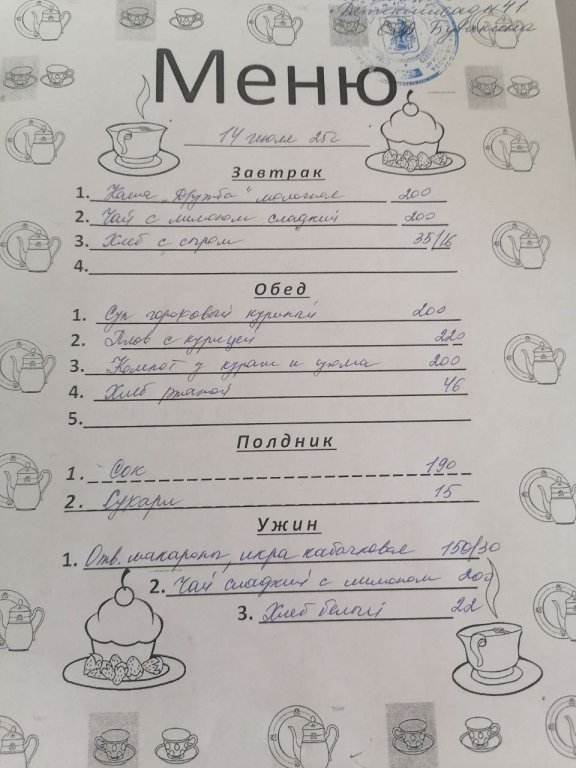 Детский сад № 41
Меню
14 июля 25г
Завтрак
1. Каша "Дружба" молочная 200
2. Чай с лимоном сладкий 200
3. Хлеб с сыром 35/16
4.
Обед
1. Суп гороховый куриный 200
2. Плов с курицей 220
3. Компот у кураги и изюма 200
4. Хлеб ржаной 46
5.
Полдник
1. Сок 190
2. Сухари 15
Ужин
1. Отв. макароны, икра кабачковая 150/30
2. Чай сладкий с лимоном 200
3. Хлеб белый 22